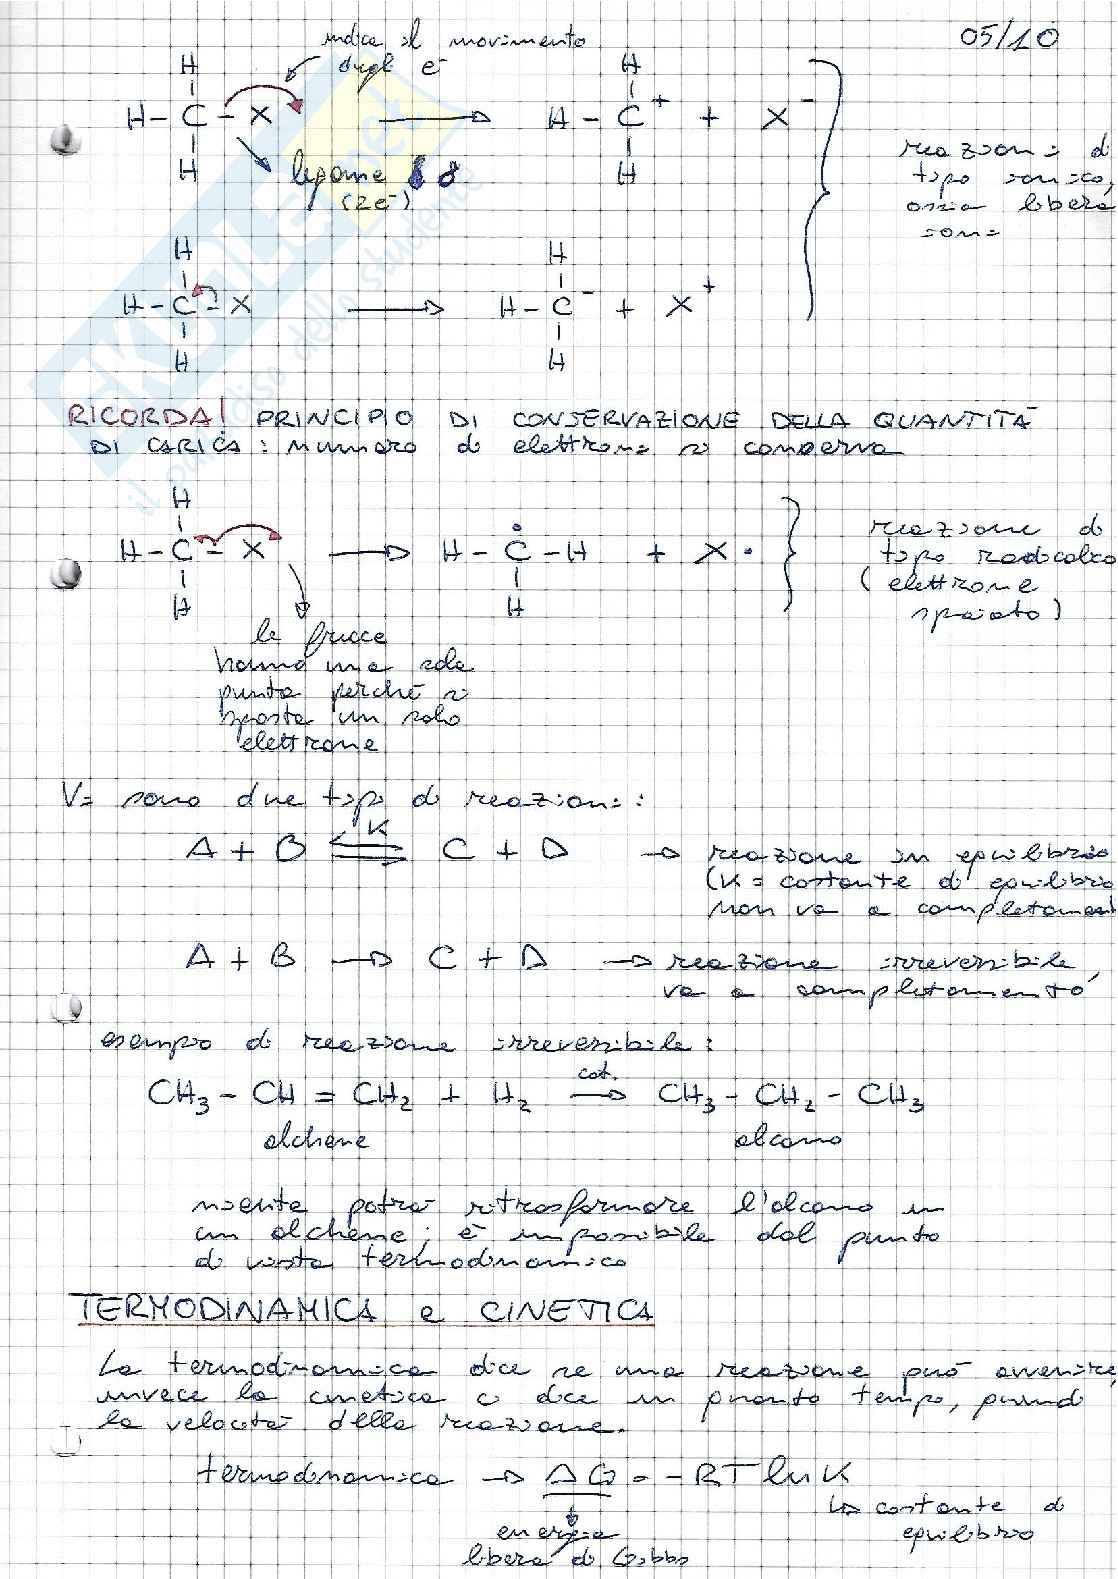 05/10
indica il movimento
degli e⁻
H
H – C – X → H – C⁺ + X⁻
H
legame δ
(2e⁻)
reazioni di
tipo ionico,
ossia libera
ioni
H
H – C – X → H – C⁻ + X⁺
H
RICORDA! PRINCIPIO DI CONSERVAZIONE DELLA QUANTITÀ
DI CARICA: numero di elettroni si conserva
H
H – C – X → H – C – H + X•
H
reazione di
tipo radicalico
(elettrone
spaiato)
le frecce
hanno una sola
punta perché si
sposta un solo
elettrone
Vi sono due tipi di reazioni:
A + B ⇌ C + D → reazione in equilibrio
K
(K = costante d'equilibrio
non va a completament
A + B → C + D → reazione irreversibile,
va a completamento
esempio di reazione irreversibile:
CH3 – CH = CH2 + H2 → CH3 – CH2 – CH3
cat.
alchene alcano
niente potrà ritrasformare l'alcano in
un alchene; è impossibile dal punto
di vista termodinamico
TERMODINAMICA e CINETICA
La termodinamica dice se una reazione può avvenire,
invece la cinetica ci dice in quanto tempo, quindi
la velocità della reazione.
termodinamica → ΔG = -RT ln K
↳ costante di
equilibrio
energia
libera di Gibbs
SKUOLA.net
il paradiso dello studente